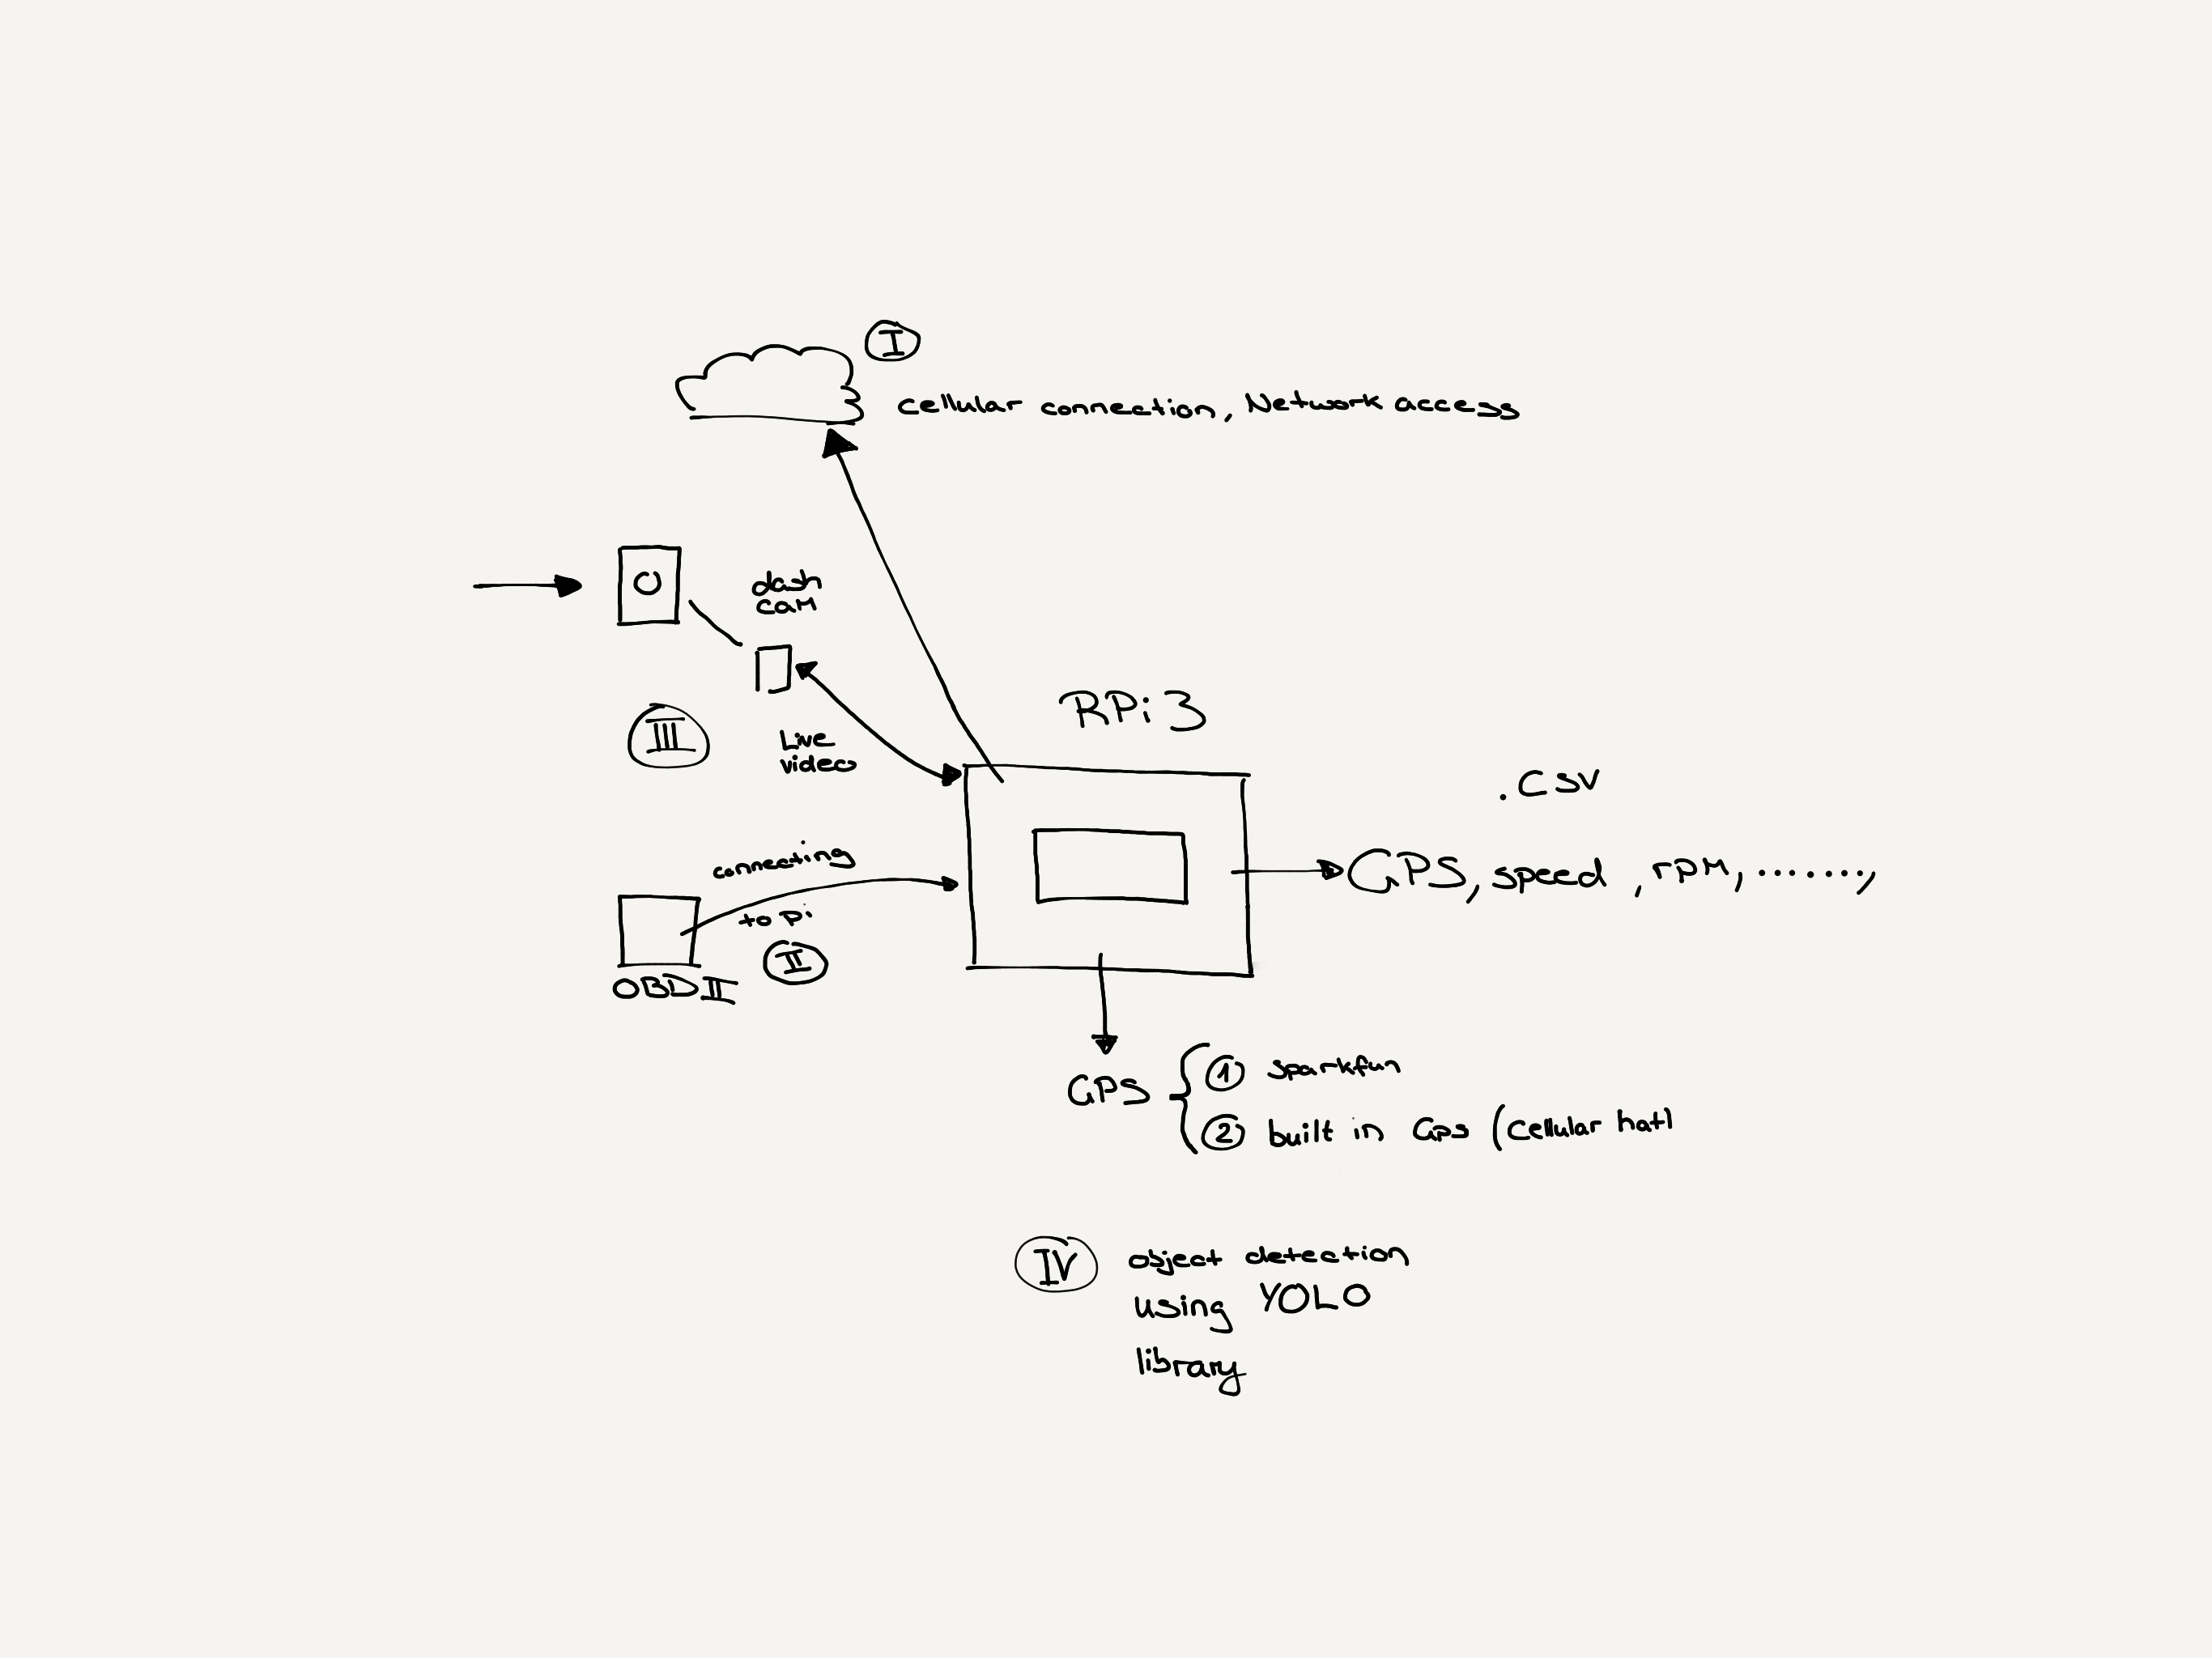 I
cellular connection, Network access
dash
cam
III
Live
video
RPi 3
.csv
GPS, speed, rpm, .......,
connecting
to Pi
II
OBD II
GPS
1 sparkfun
2 built in Gps (Cellular hat)
IV object detection
using YOLO
library